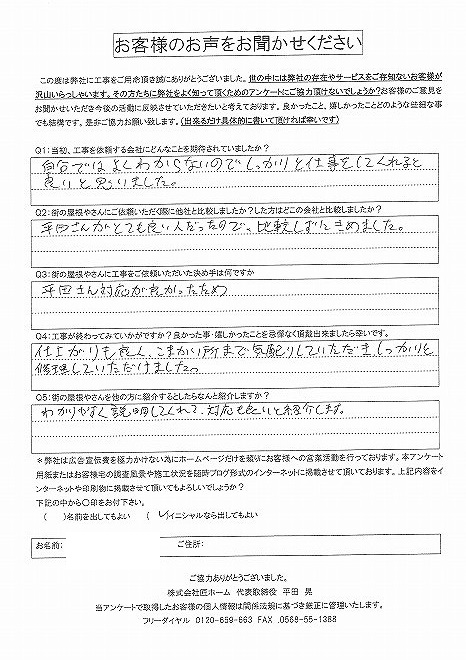 お客様のお声をお聞かせください
この度は弊社に工事をご用命頂き誠にありがとうございました。世の中には弊社の存在やサービスをご存知ないお客様が
沢山いらっしゃいます。その方たちに弊社をよく知って頂くためのアンケートにご協力頂けないでしょうか?お客様のご意見を
お聞かせいただき今後の活動に反映させていただきたいと考えております。良かったこと、嬉しかったことどのような些細な事
でも結構です。是非ご協力お願い致します。(出来るだけ具体的に書いて頂ければ幸いです)
Q1:当初、工事を依頼する会社にどんなことを期待されていましたか?
自分ではよくわからないのでしっかりと仕事をしてくれると
良いと思いました。
Q2:街の屋根やさんにご依頼いただく際に他社と比較しましたか?した方はどこの会社と比較しましたか?
平田さんがとても良い人だったので、比較しずにきめました。
Q3:街の屋根やさんに工事をご依頼いただいた決め手は何ですか
平田さん対応が良かったため
Q4:工事が終わってみていかがですか?良かった事・嬉しかったことを忌憚なく頂戴出来ましたら幸いです。
仕上がりも良く、こまかい所まで気配りしていただき、しっかりと
修理していただけました。
Q5:街の屋根やさんを他の方に紹介するとしたらなんと紹介しますか?
わかりやすく説明してくれて、対応も良いと紹介します。
*弊社は広告宣伝費を極力かけない為にホームページだけを頼りにお客様への営業活動を行っております。本アンケート
用紙またはお客様宅の調査風景や施工状況を随時ブログ形式のインターネットに掲載させて頂いております。上記内容をイ
ンターネットや印刷物に掲載させて頂いてもよろしいでしょうか?
下記の中から〇印をお付下さい。
( )名前を出してもよい ( ✓)イニシャルなら出してもよい
お名前: ご住所:
ご協力ありがとうございました。
株式会社匠ホーム 代表取締役 平田 晃
当アンケートで取得したお客様の個人情報は関係法規に基づき厳正に管理いたします。
フリーダイヤル 0120-659-663 FAX .0569-55-1388